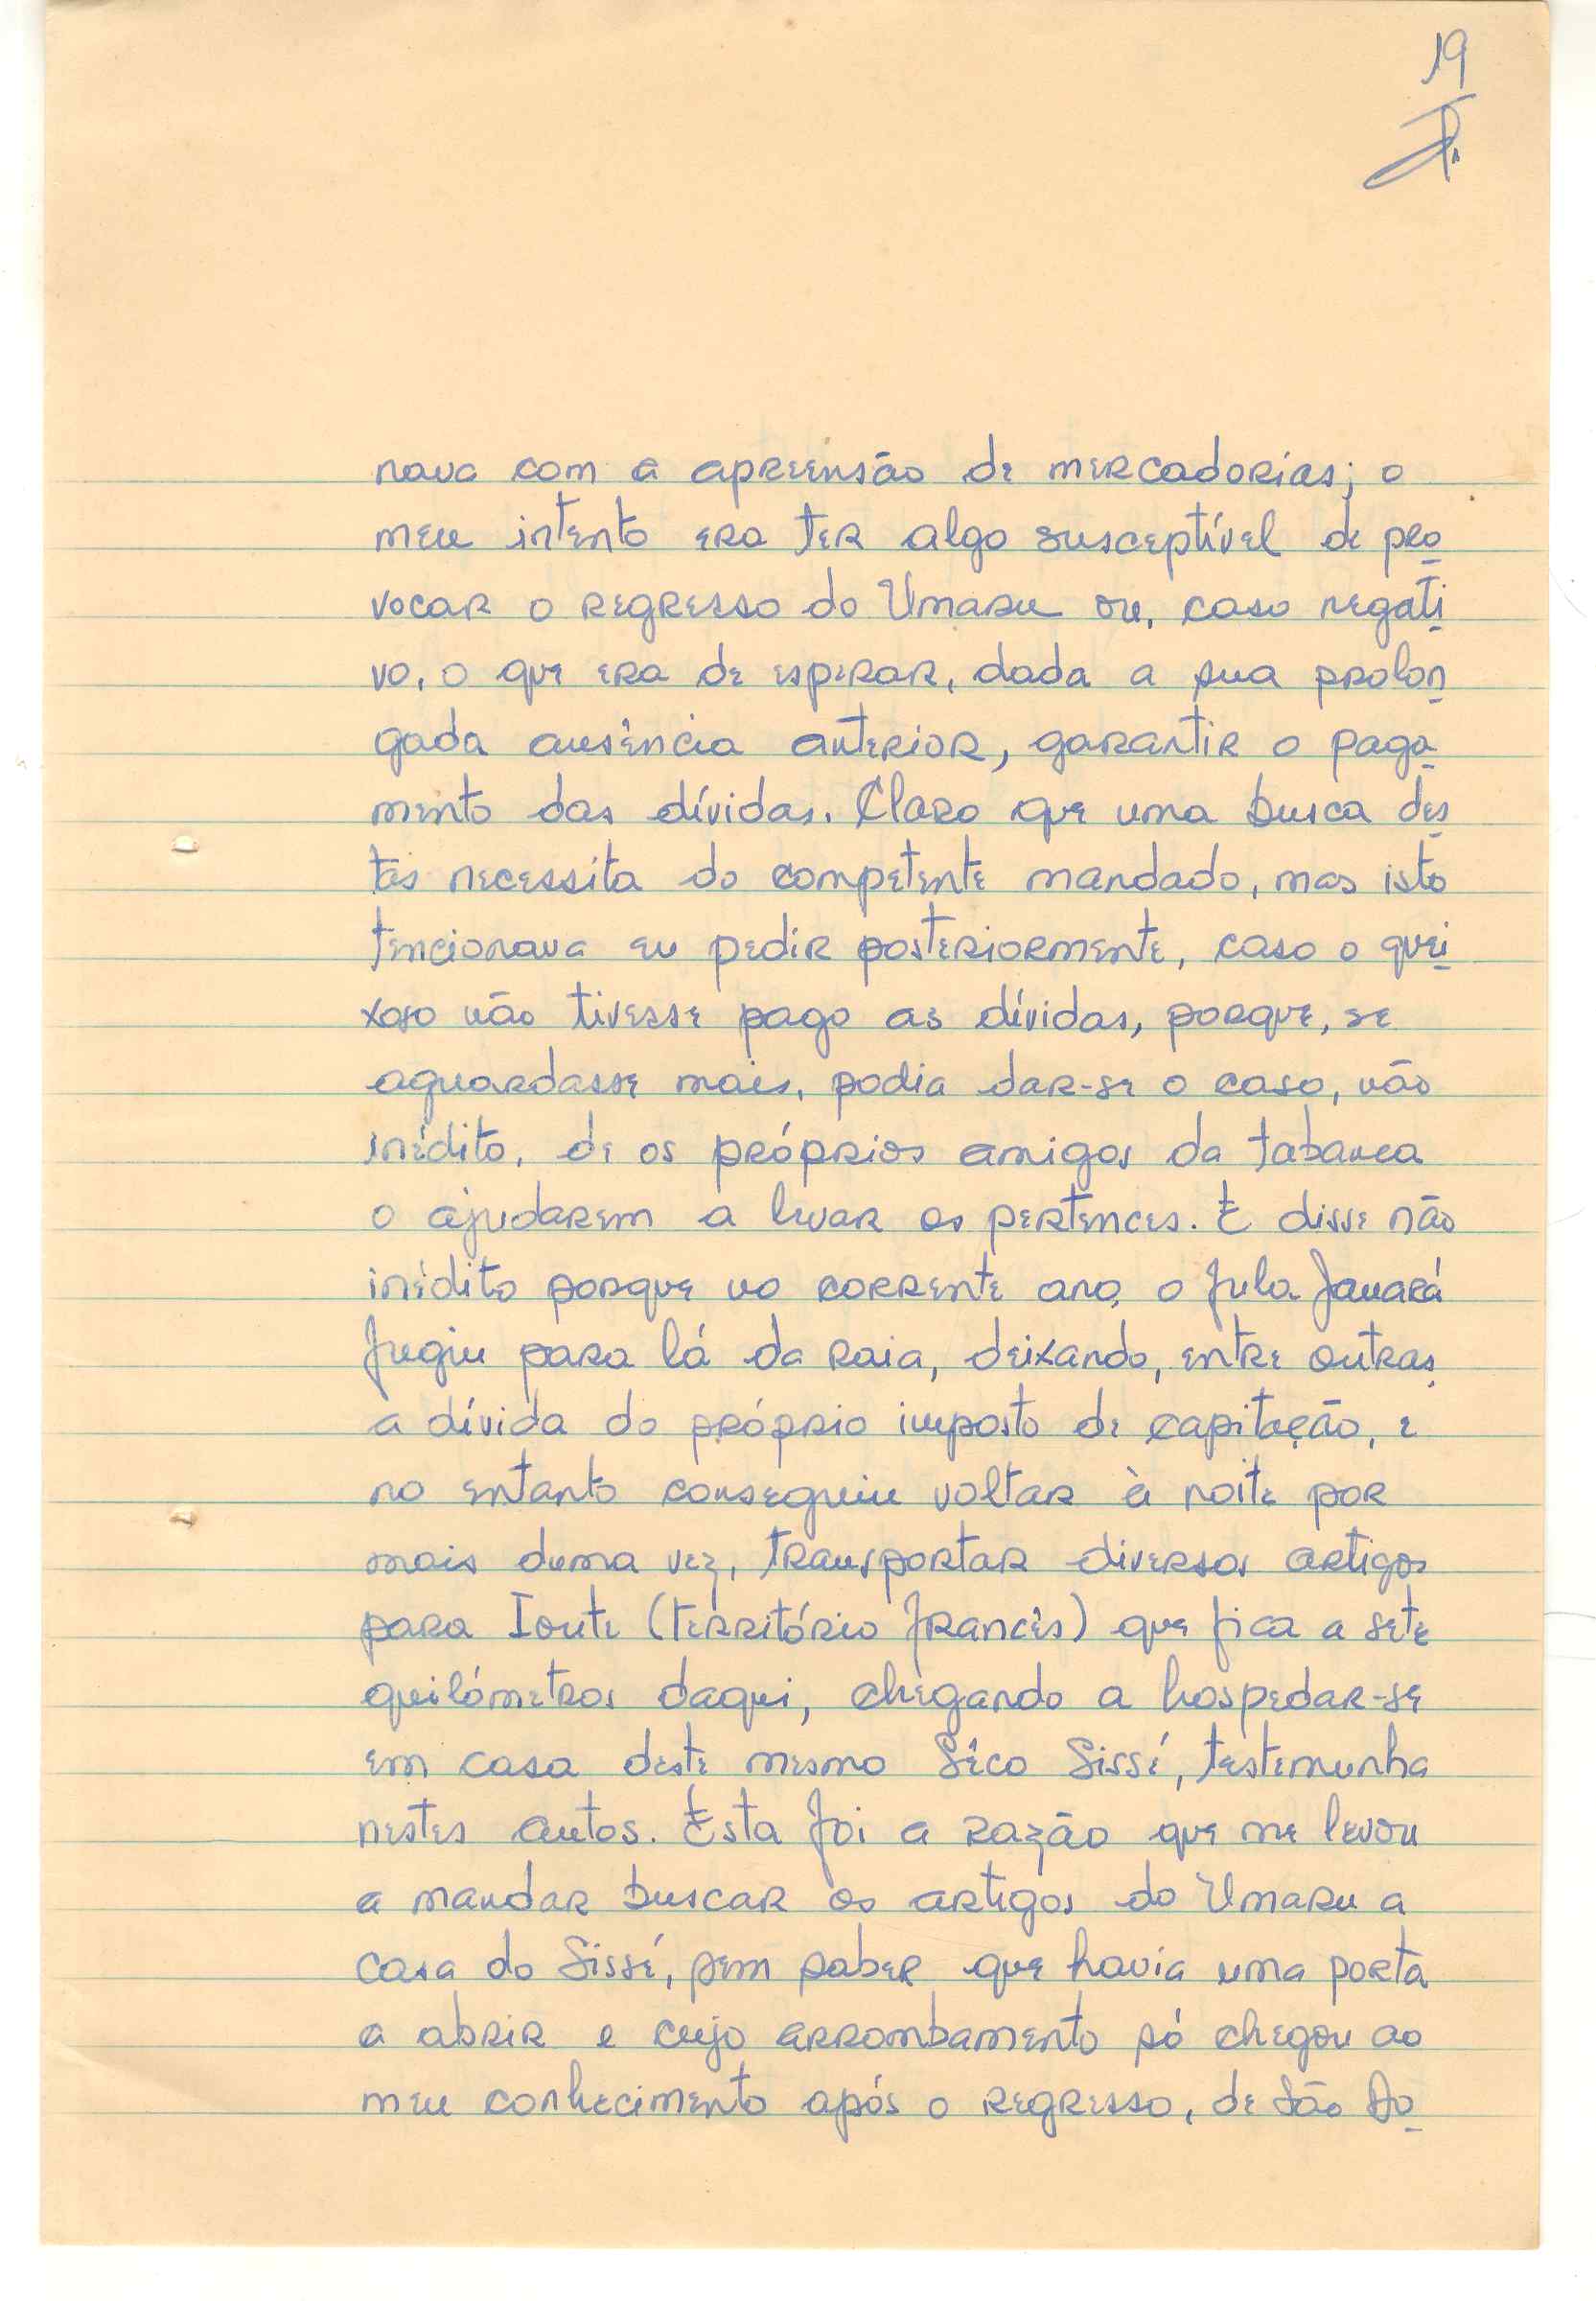 19
nava com a apreensão de mercadorias; o
meu intento era ter algo susceptível de pro
vocar o regresso do Umaru ou, caso negati
vo, o que era de esperar, dada a sua prolon
gada ausência anterior, garantir o paga
mento das dívidas. Claro que uma busca des
tas necessita do competente mandado, mas isto
tencionava eu pedir posteriormente, caso o quei
xoso não tivesse pago as dívidas, porque, se
aguardasse mais, podia dar-se o caso, não
inédito, de os próprios amigos da tabanca
o ajudarem a levar os pertences. E disse não
inédito porque no corrente ano, o Jula Jauará
fugiu para lá da raia, deixando, entre outras,
a dívida do próprio imposto de capitação, e
no entanto conseguiu voltar à noite por
mais duma vez, transportar diversos artigos
para Ioute (território francês) que fica a sete
quilómetros daqui, chegando a hospedar-se
em casa deste mesmo Sêco Sissé, testemunha
nestes autos. Esta foi a razão que me levou
a mandar buscar os artigos do Umaru a
casa do Sissé, sem saber que havia uma porta
a abrir e cujo arrombamento só chegou ao
meu conhecimento após o regresso, de São Do